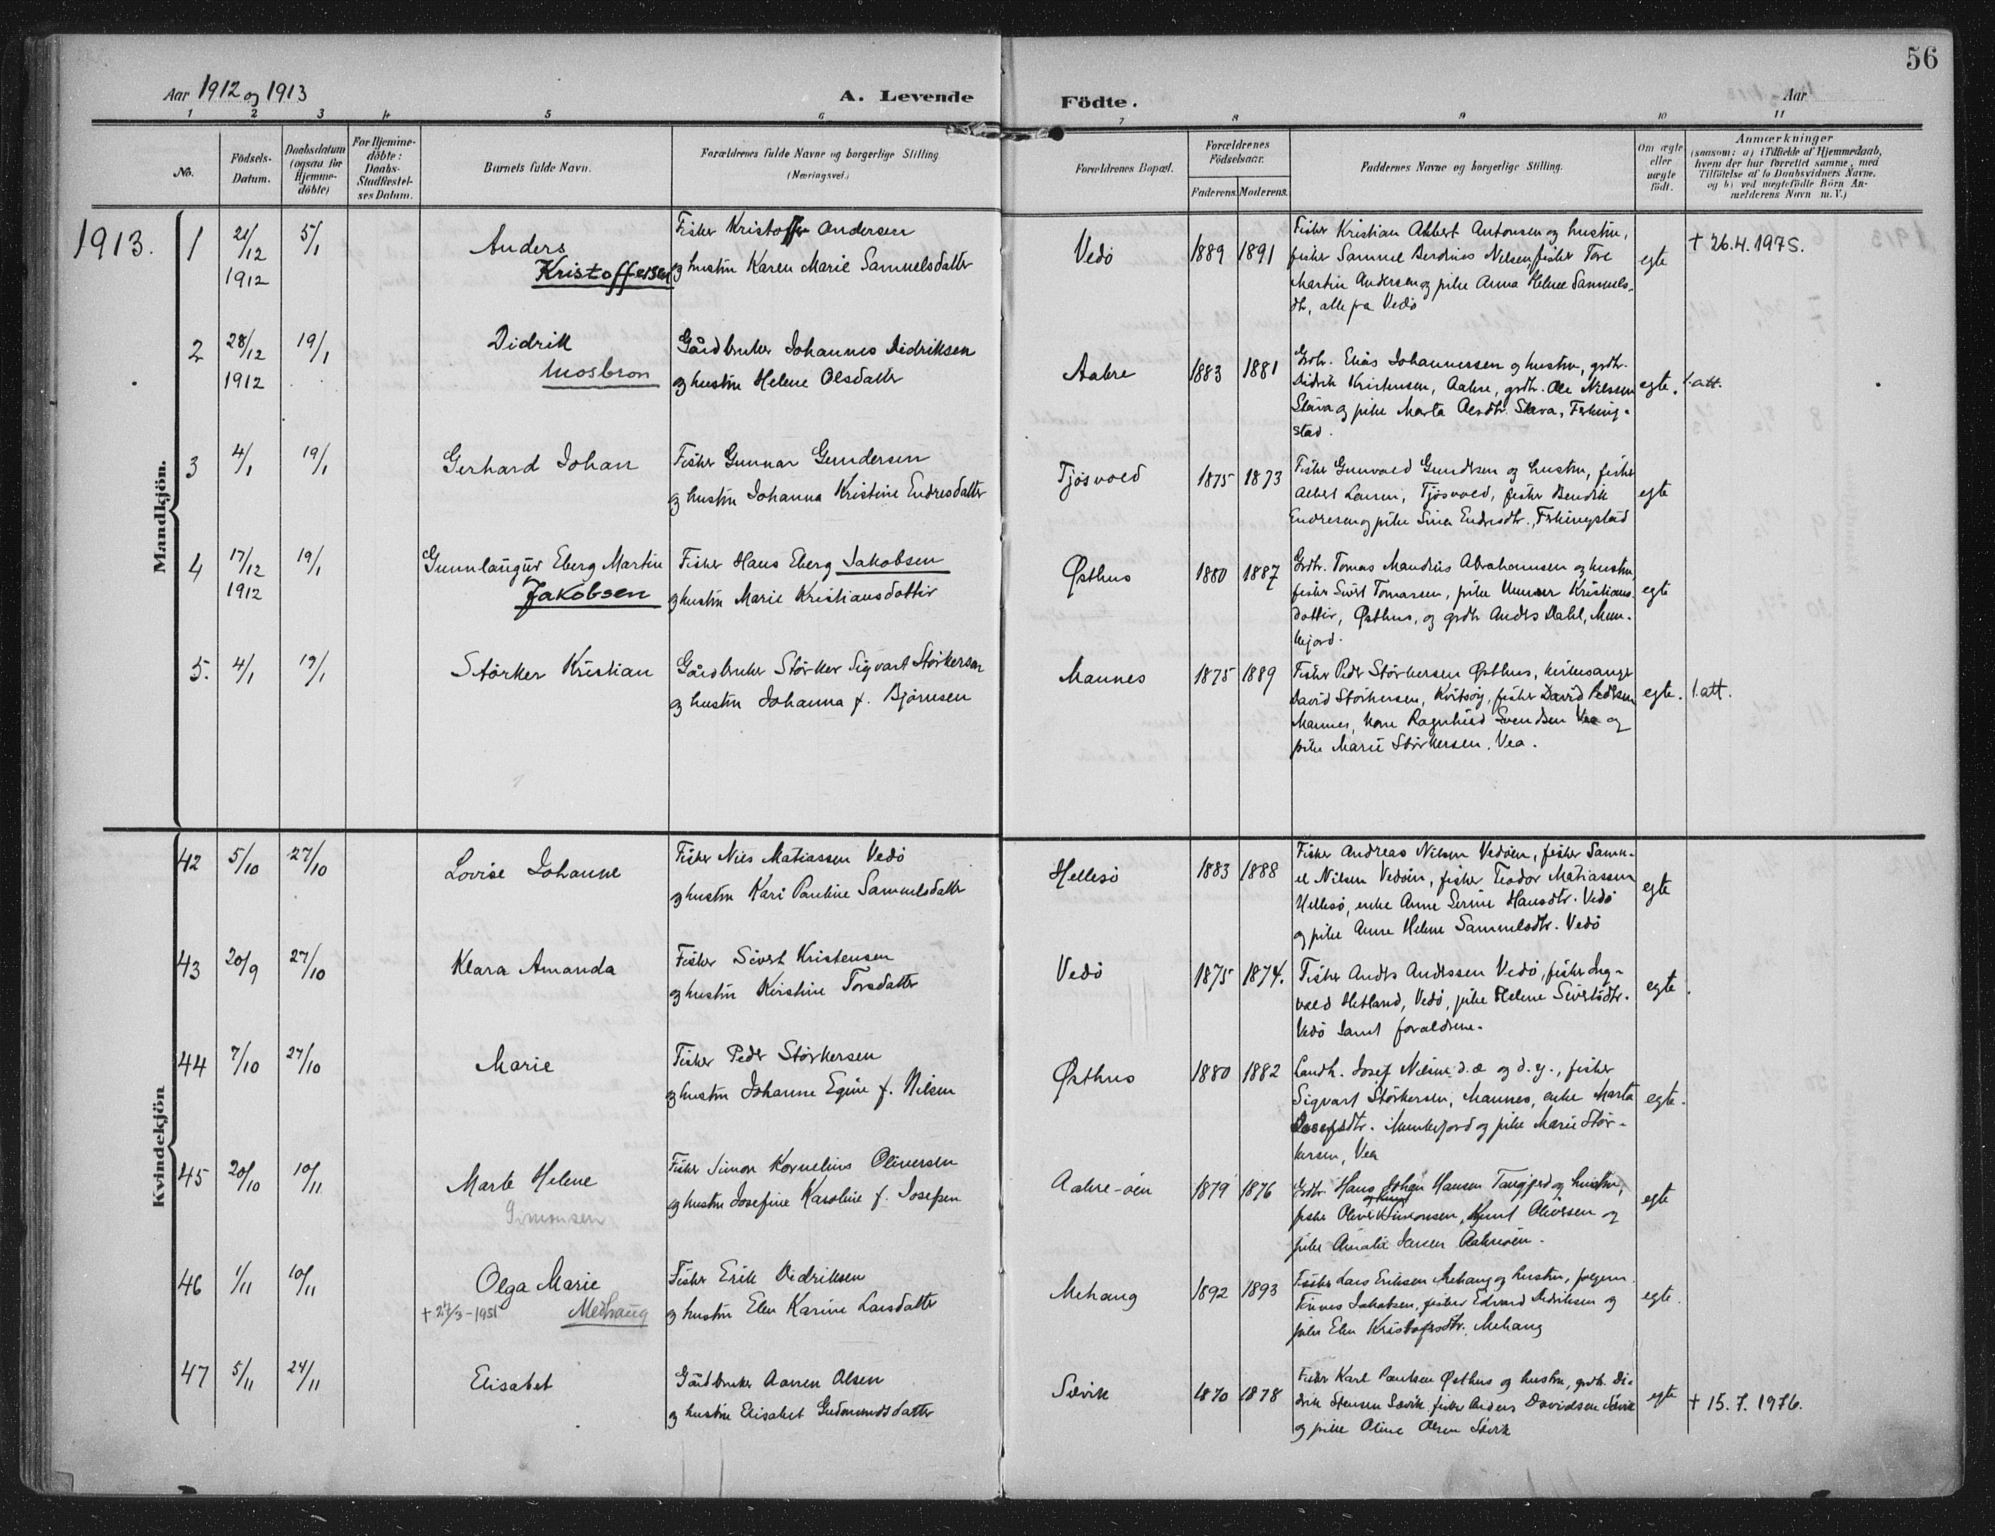 56
Aar 1912 og 1913
A. Levende Födte.
Aar
1 2 3 4 5 6 7 8 9 10 11
No.
Födsels-
Datum.
Daabsdatum
(ogsaa for
Hjemme-
döbte)
For Hjemme-
döbte:
Daabs-
Stadfestel-
ses Datum.
Barnets fulde Navn.
Forældrenes fulde Navne og borgerlige Stilling
(Næringsvei.)
Forældrenes Bopæl.
Forældrenes
Födselsaar.
Faderens. Moderens.
Faddernes Navne og borgerlige Stilling.
Om ægte
eller
uægte
födt.
Anmærkninger
(saasom: a) i Tilfælde af Hjemmedaab,
hvem der har forrettet samme, med
Tilföielse af to Daabsvidners Navne,
og b) ved uægtefödte Börn An-
melderens Navn m. V.)
Mandkjön.
1913.
1
21/12
1912
5/1
Anders
Kristoffersen
Fisker Kristoffer Andersen
og hustru Karen Marie Samuelsdatter
Vedö
1889 1891
Fisker Kristian Albert Antonsen og hustru,
fisker Samuel Berdines Nilsen, fisker Tore
Martin Andersen og pike Anna Helene Samuels-
dtr, alle fra Vedö
egte
† 26.4.1975.
2
28/12
1912
19/1
Didrik
Mosbron
Gårdbruker Johannes Didriksen
og hustru Helene Olsdatter
Aakre
1883 1881
Grdbr. Elias Johannessen og hustru, grdbr.
Didrik Kristensen, Aakre, grdbr. Ole Nilssen
Stava og pike Marta Olsdtr. Stava, Ferking-
stad.
egte.
1. att.
3
4/1
19/1
Gerhard Johan
Fisker Gunnar Gundersen
og hustru Johanna Kristine Endresdatter
Tjösvold
1875 1873
Fisker Gunvald Gundersen og hustru, fisker
Albert Larsen, Tjösvold, fisker Bendik
Endresen og pike Sina Endresdtr., Ferkingstad
egte
4
17/12
1912
19/1
Gunnlaugur Eberg Martin
Jakobsen
Fisker Hans Eberg Jakobsen
og hustru Marie Kristiansdatter
Østhus
1880 1887
Grdbr. Tomas Mandius Abrahamsen og hustru,
fisker Sivert Tomassen, pike Kristians-
datter, Østhus, og grdbr Anders Dahl, Mun-
kejord.
egte
5.
4/1
19/1
Störker Kristian
Gårdbruker Störker Sigvart Störkersen
og hustru Johanna f. Bjørnsen
Mannes
1875 1889
Fisker Peder Störkersen Østhus, kirkesanger
David Störkersen, Kvitsöy, fisker David Pedersen
Mannes, kone Ragnhild Svendsen Vea og
pike Marie Störkersen, Vea.
egte.
1. att.
Kvindekjön
42
5/10
27/10
Lovise Johanne
Fisker Nils Matiassen Vedö
og hustru Kari Pauline Samuelsdatter
Hellesö
1883 1888
Fisker Andreas Nilsen Vedöen, fisker Samu-
el Nilsen Vedöen, fisker Teodor Matiassen
Hellesö, enke Anne Serine Hansdtr. Vedö
og pike Anne Helene Samuelsdtr. Vedö
egte
43
20/9
27/10
Klara Amanda
Fisker Sivert Kristensen
og hustru Kirstine Torsdatter
Vedö
1875 1874.
Fisker Anders Anderssen Vedö, fisker Ing-
vald Hetland, Vedö, pike Helene Sivertsdtr.
Vedö samt forældrene.
egte.
44
7/10
27/10
Marie
Fisker Peder Störkersen
og hustru Johanne Egine f. Nilsen
Østhus
1880 1882
Landh. Josef Nilsen d. æ og d. y., fisker
Sigvart Störkersen, Mannes, enke Marta
Josefsdtr. Munkejord og pike Marie Stör-
kersen, Vea
egte.
45
20/10
10/11
Marte Helene
Simonsen
Fisker Simon Kornelius Oliversen
og hustru Josefine Karoline f. Josefsen
Aakre-öen
1879 1876
Grdbr. Hans Johan Hansen Tangjerd og hustru,
og hustru
fisker Oliver Simonsen, Knut Oliversen og
pike Amalie Jensen Aakreöen.
egte
46
1/11
10/11
Olga Marie
† 27/3-1951 Medhaug
Fisker Erik Didriksen
og hustru Elen Karine Larsdatter
Mehaug
1892 1893
Fisker Lars Eriksen Mehaug og hustru,
Tönnes Jakobsen, fisker Edvard Didriksen og
pike Elen Kristofersdtr. Mehaug
egte.
47
5/11
24/11
Elisabet
Gårdbruker Aanen Olsen
og hustru Elisabet Gudmundsdatter
Sævik
1870 1878
Fisker Karl Paulsen Østhus og hustru, grdbr. Di-
drik Stensen Sævik, fisker Anders Davidsen Sævik
og pike Oline Olsen Sævik
egte
† 15.7.1976.